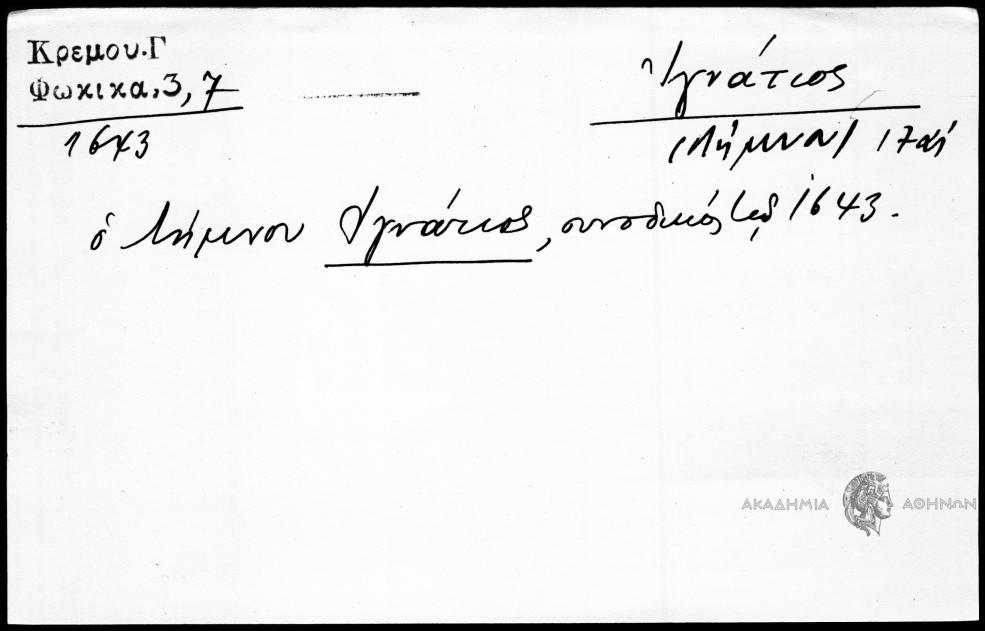 Κρεμου.Γ
Φωκικα,3,7
1643
Ἰγνάτιος
(Λήμνου) 17αἰ
ὁ Λήμνου Ἰγνάτιος, συνοδικός 1643.
ΑΚΑΔΗΜΙΑ ΑΘΗΝΩΝ